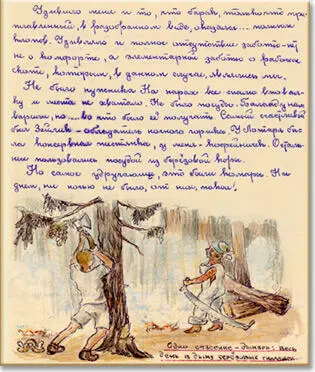 Удивило меня и то, что барак, только что при-
плавленный в разобранном виде, оказался... полным
клопов. Удивляло и полное отсутствие заботы - ну
не о комфорте, а элементарной заботы о рабочем
скоте, которым, в данном случае, являлись мы.
Не было нужника. На нарах все спали впова-
лку и места не хватало. Не было посуды. Баланду нам
варили, но... во что было её получать? Самым счастливым
был Зейлик - обладатель ночного горшка. У Лотаря бы-
ла консервная жестянка, у меня - кофейничек. Осталь-
ные пользовались посудой из берёзовой коры.
Но самое удручающее, это были комары. Ни
днём, ни ночью не было, от них, покоя!
Одно спасение - дымари: весь
день в дыму сберегаем